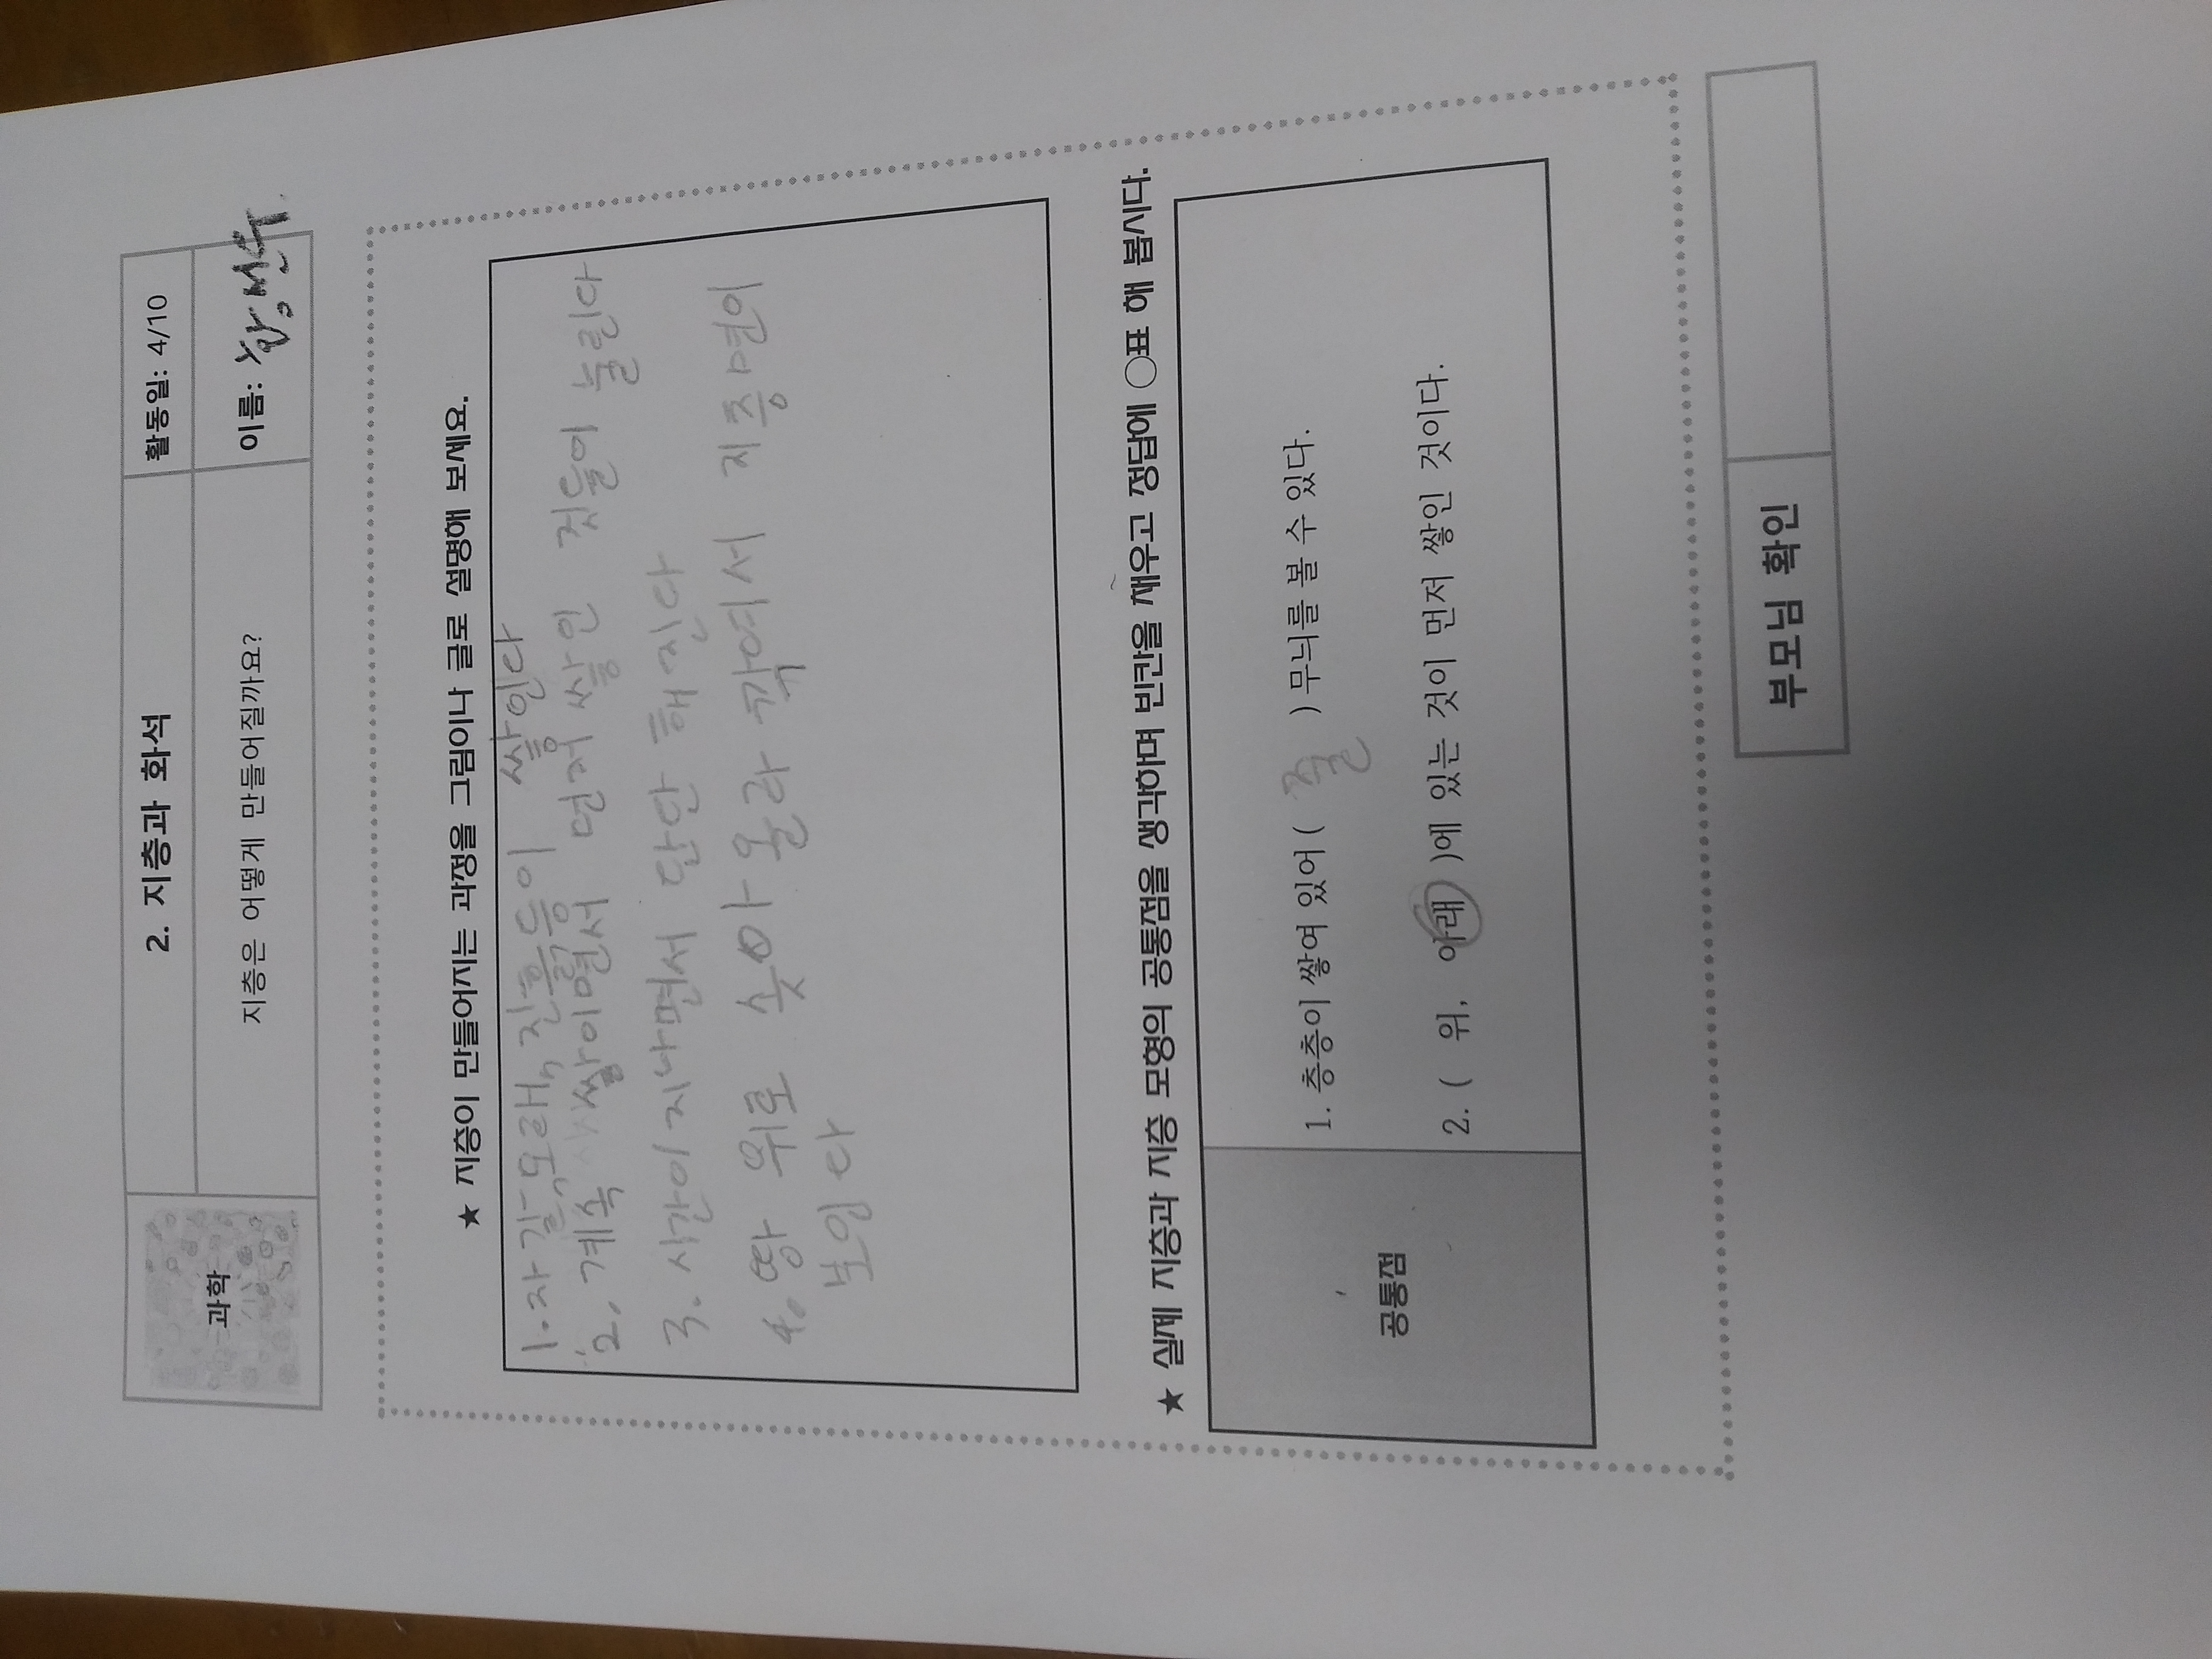 과학
2. 지층과 화석
활동일: 4/10
지층은 어떻게 만들어질까요?
이름:
★ 지층이 만들어지는 과정을 그림이나 글로 설명해 보세요.
1. 자갈, 모래, 진흙등이 쌓인다
2. 계속 쌓이면서 먼저 쌓인 것들이 눌린다
3. 시간이 지나면서 단단해진다
4. 땅 위로 솟아 올라 깎여서 지층면이
보인다
★ 실제 지층과 지층 모형의 공통점을 생각하며 빈칸을 채우고 정답에 ○표 해 봅시다.
공통점
1. 층층이 쌓여 있어 ( 줄 ) 무늬를 볼 수 있다.
2. ( 위, 아래 )에 있는 것이 먼저 쌓인 것이다.
부모님 확인